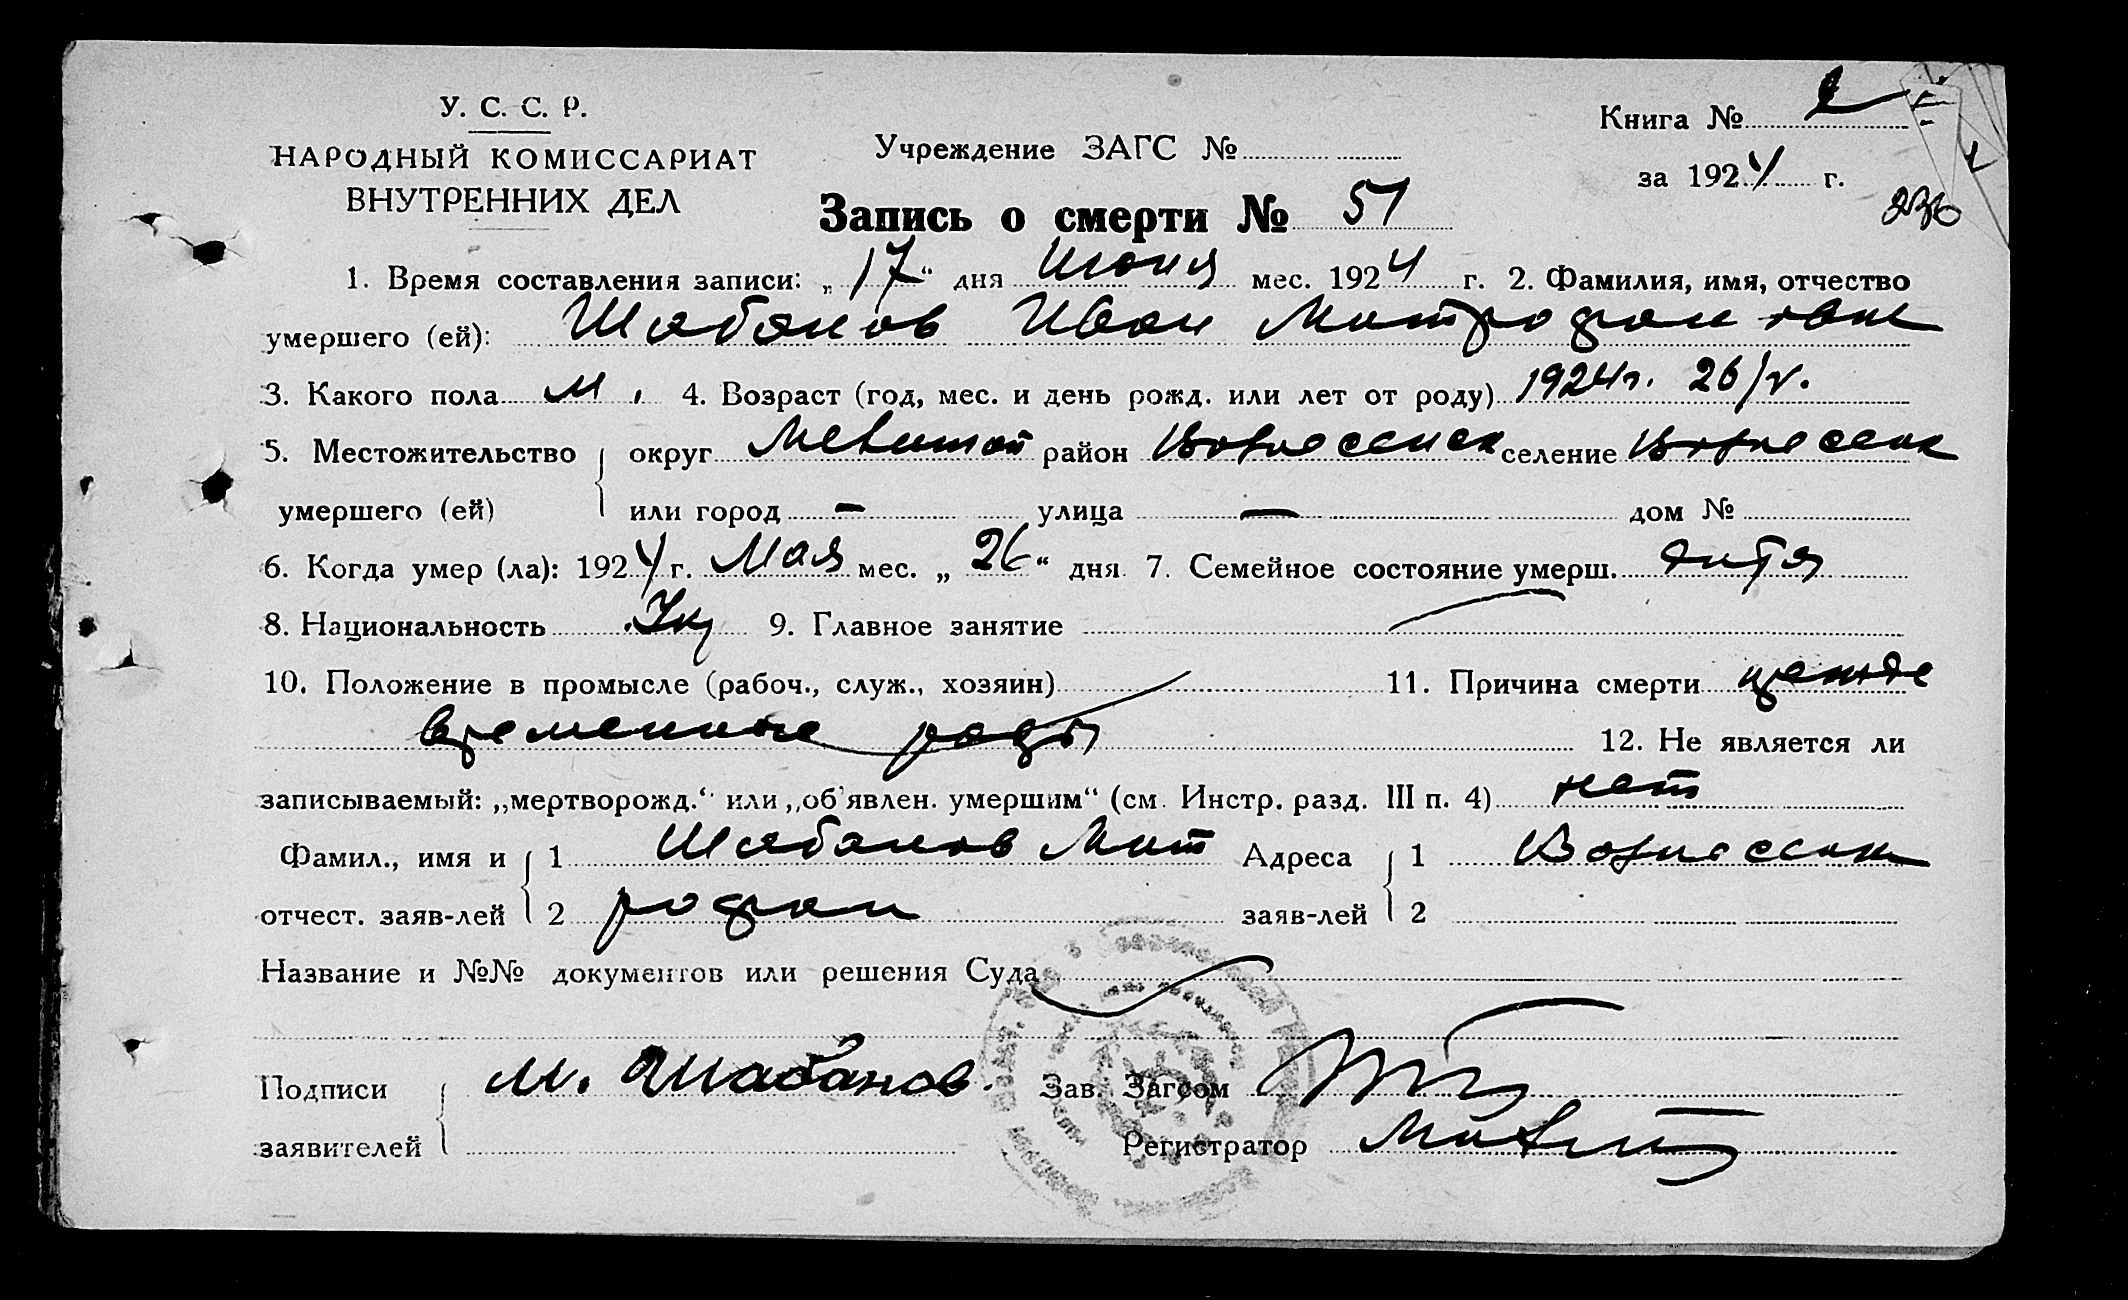 У. С. С. Р.
НАРОДНЫЙ КОМИССАРИАТ
ВНУТРЕННИХ ДЕЛ
Учреждение ЗАГС №
Книга №
за 1924 г.
236
Запись о смерти № 51
1. Время составления записи: „17“ дня Июня мес. 1924 г. 2. Фамилия, имя, отчество
умершего (ей): Шабанов Иван Митрофанович
3. Какого пола м. 4. Возраст (год, мес. и день рожд. или лет от роду) 1924 г. 26/V.
5. Местожительство умершего (ей) округ район Вознесенск селение Вознесенк
или город — улица — дом №
6. Когда умер (ла): 1924 г. Мая мес. „26“ дня 7. Семейное состояние умерш. дитя
8. Национальность Укр 9. Главное занятие
10. Положение в промысле (рабоч., служ., хозяин) 11. Причина смерти прежде
временные роды 12. Не является ли
записываемый: „мертворожд.“ или „об'явлен. умершим“ (см. Инстр. разд. III п. 4) нет
Фамил., имя и отчест. заяв-лей 1 Шабанов Мит Адреса заяв-лей 1 Вознесенк
2 рофан 2
Название и №№ документов или решения Суда
Подписи заявителей М. Шабанов. Зав. Загсом
Регистратор